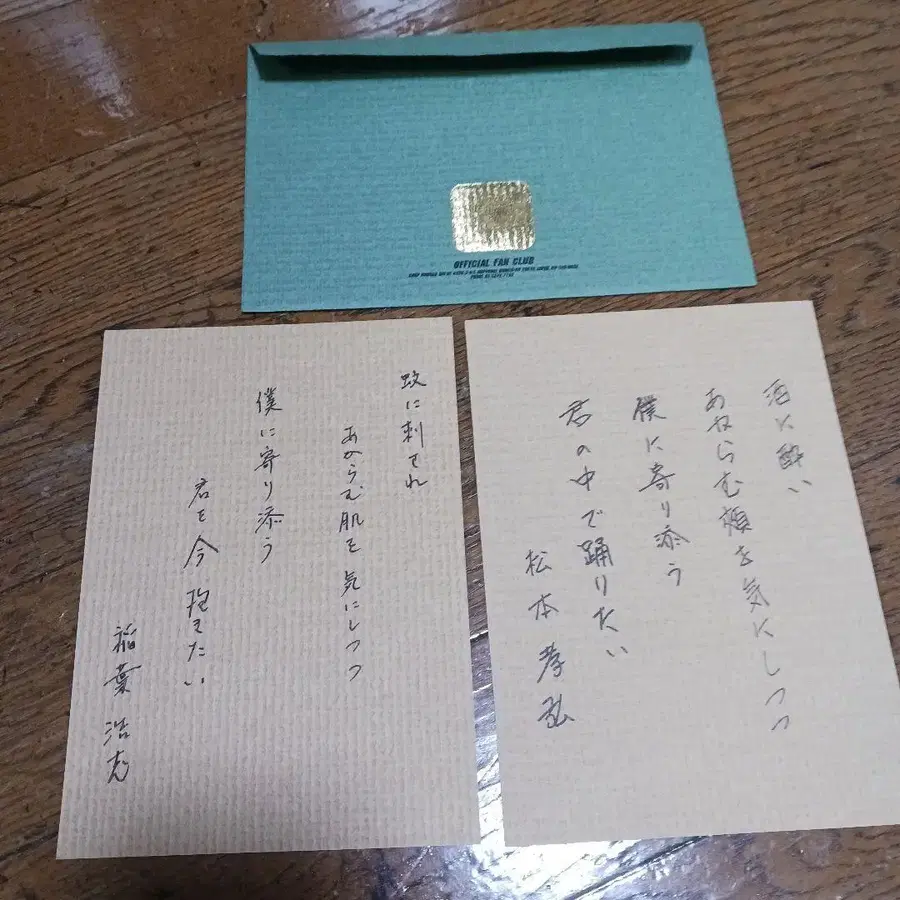 OFFICIAL FAN CLUB
蚊に刺され
あからむ肌を気にしつつ
僕に寄り添う
君を今抱きたい
稲葉浩志
酒に酔い
あからむ頬を気にしつつ
僕に寄り添う
君の中で踊りたい
松本孝弘